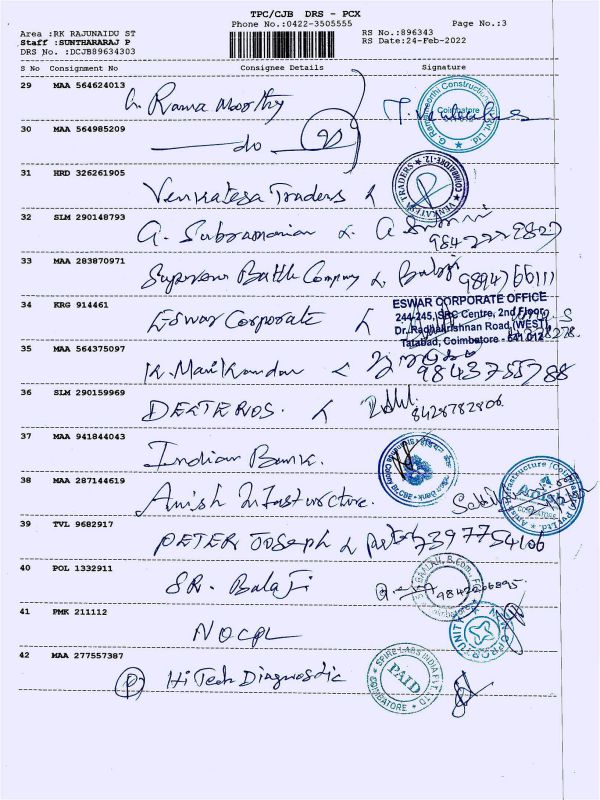 TPC/CJB DRS - PCX
Phone No.:0422-3505555
Page No.:3
Area :RK RAJUNAIDU ST
RS No.:896343
Staff :SUNTHARARAJ P
RS Date:24-Feb-2022
DRS No. :DCJB89634303
S No Consignment No Consignee Details Signature
29 MAA 564624013
G. Rama Moorthy
Coimbatore
30 MAA 564985209
do
31 HRD 326261905
Venkatesa Traders
VENKATESA TRADERS
COIMBATORE-12
32 SLM 290148793
G. Subramanian
33 MAA 283870971
Superior Battle Company & Balaji
9894766111
34 KRG 914461
Eswar Corporate
ESWAR CORPORATE OFFICE
244-245, SRC Centre, 2nd Floor,
Dr. Radhakrishnan Road, (WEST)
Tatabad, Coimbatore - 641 012
35 MAA 564375097
K. Manikandan
9843755788
36 SLM 290159969
DEXTEROS.
8428782806
37 MAA 941844043
Indian Bank.
38 MAA 287144619
Anish Infrasturcture.
39 TVL 9682917
PETER Joseph & Peter 7397754106
40 POL 1332911
SR. Balaji
41 PMK 211112
NOCPL
42 MAA 277557387
Hi Tech Diagnostic
SPIRE LABS INDIA PVT. LTD
PAID
COIMBATORE